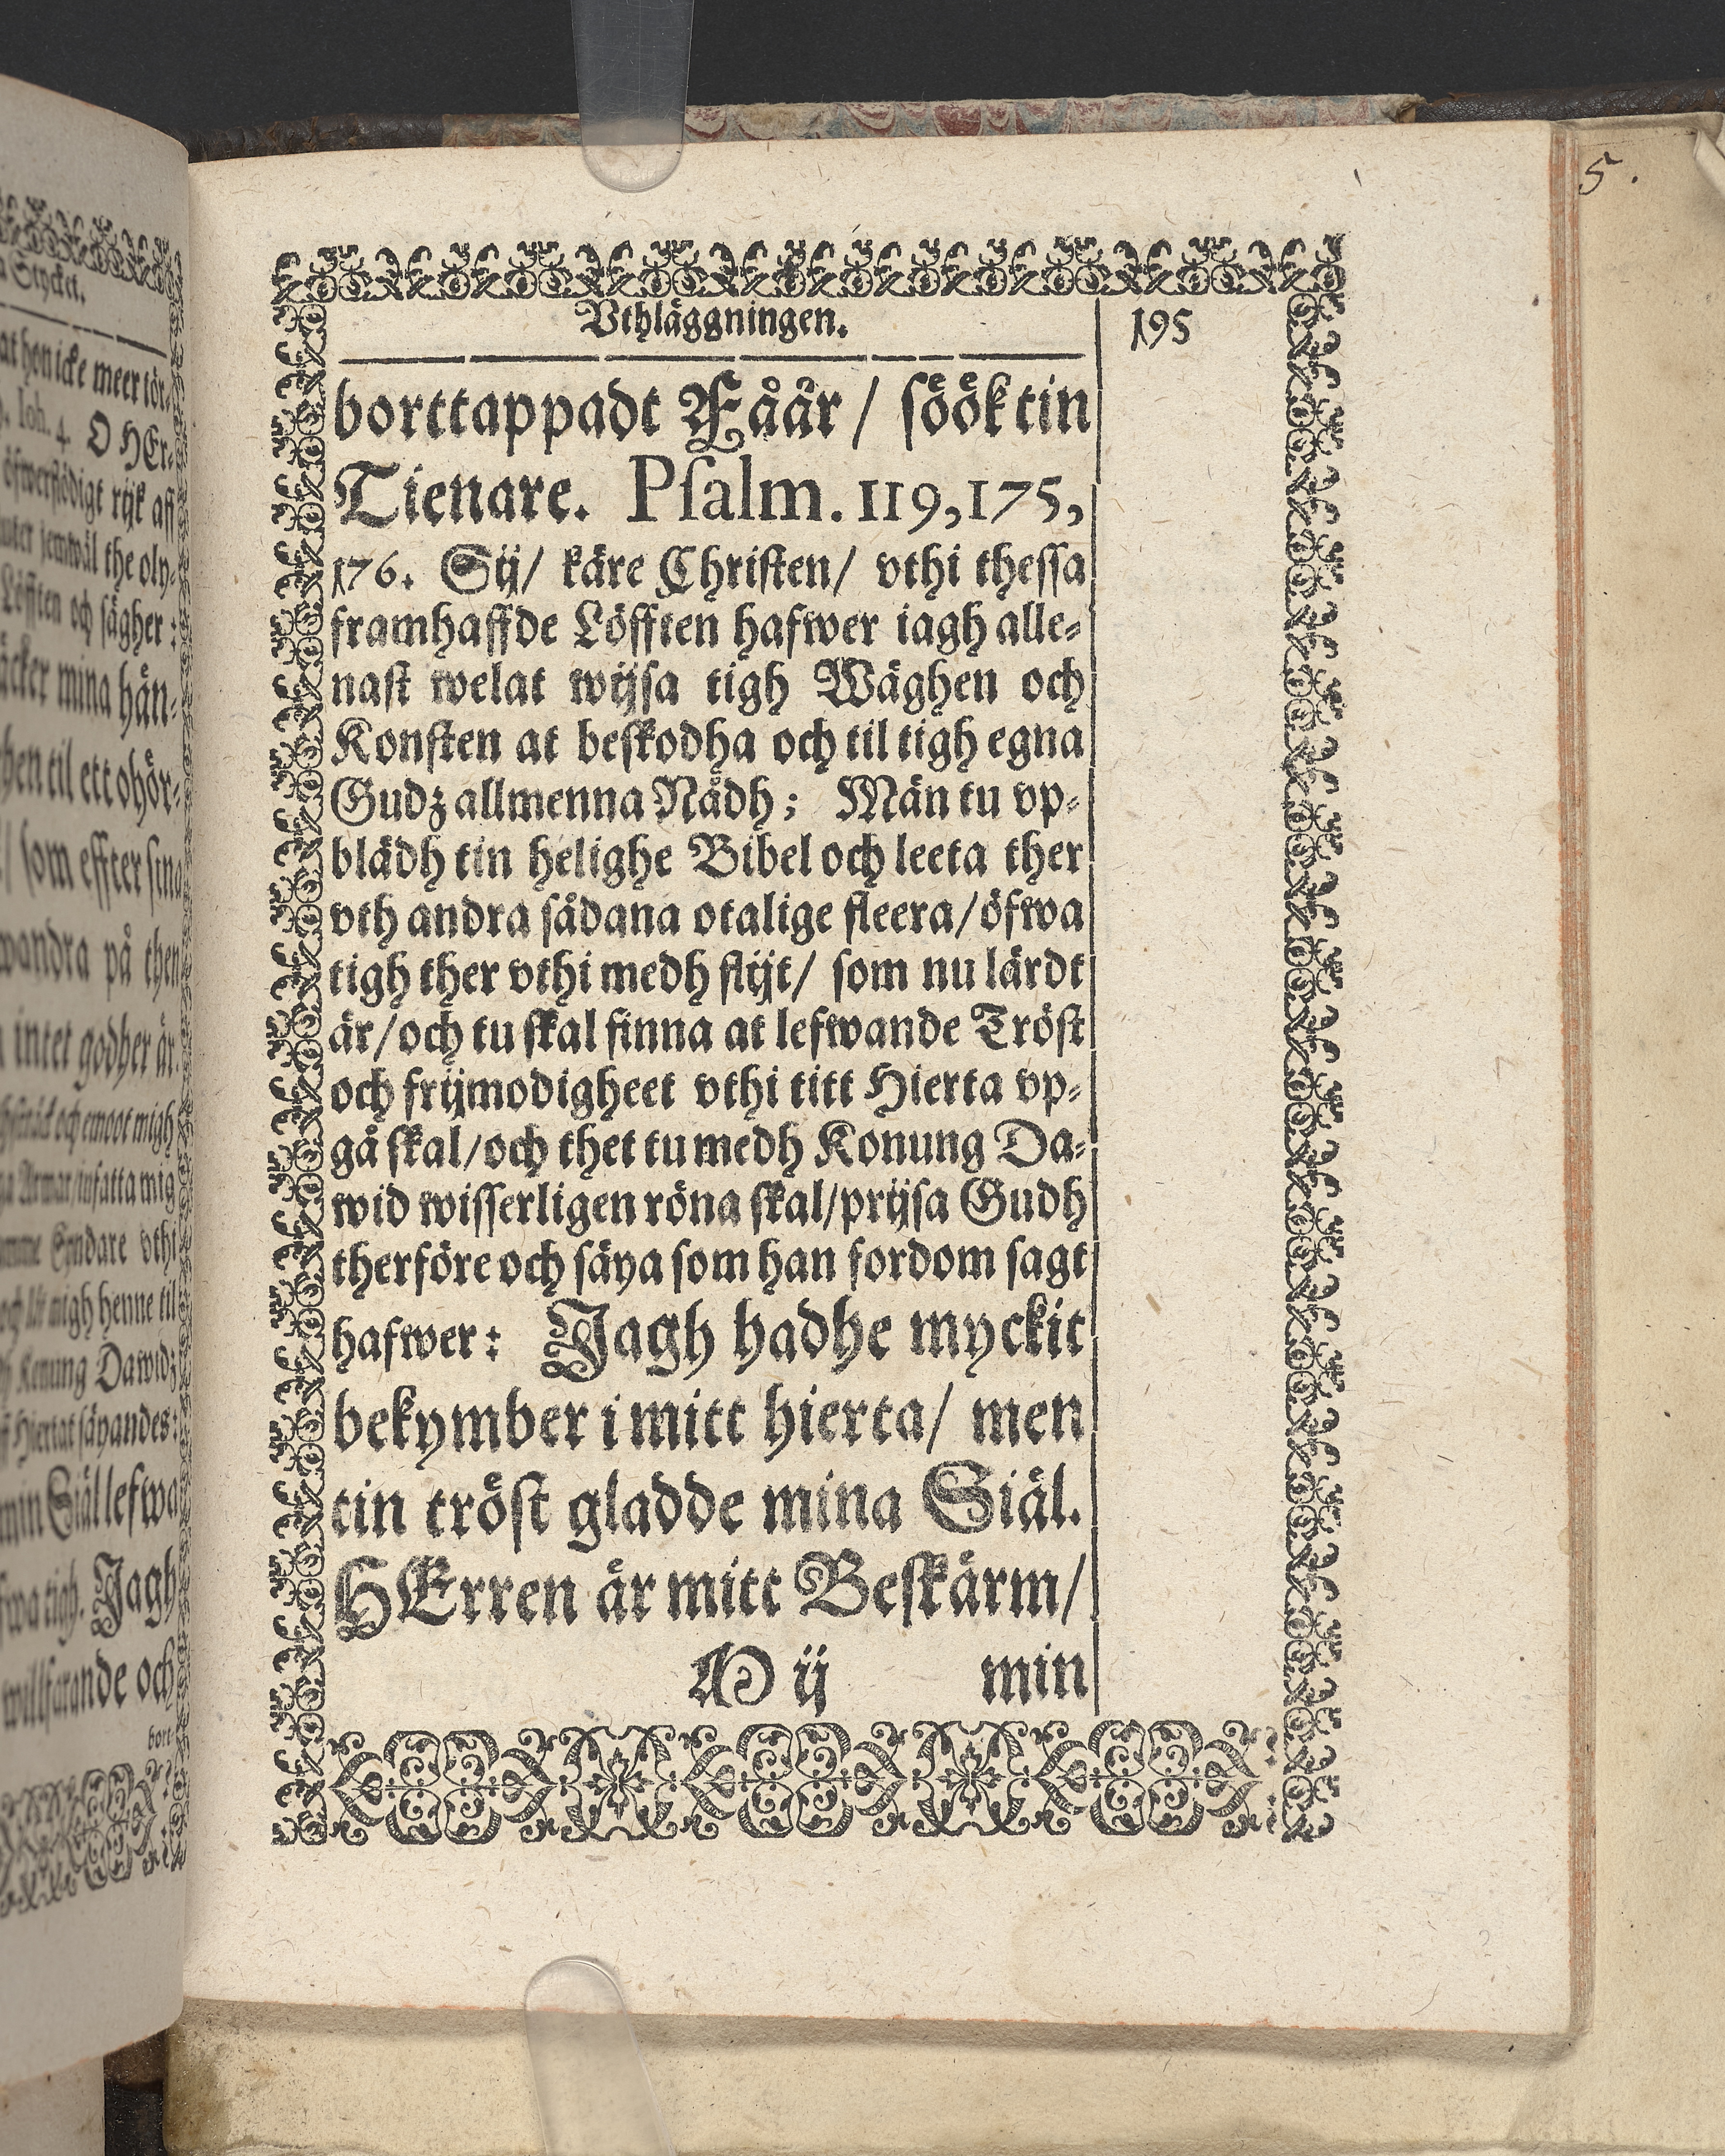 a Stycket.
at hen icke meer tör-
Ioh. 4. O HEr-
öfwerflödigt rijk aff
jemwäl the oly-
Löfften och sägher:
äcker mina hän-
hen til ett ohör-
/ som effter sina
wandra på then
intet godher är.
och emoot migh
Armar/infatta mig
Syndare vthi
och låt migh henne til
Konung Dawidz
Hiertat säyandes:
min Siäl lefwa
tigh. Jagh
willfarande och
bort
Vthläggningen.
195
borttappadt Fåår / söök tin
Tienare. Psalm. 119,175,
176. Sij/ käre Christen/ vthi thessa
framhaffde Löfften hafwer iagh alle-
nast welat wijsa tigh Wäghen och
Konsten at beskodha och til tigh egna
Gudz allmenna Nådh; Män tu vp-
blädh tin helighe Bibel och leeta ther
vth andra sådana otalige fleera/öfwa
tigh ther vthi medh flijt/ som nu lärdt
är/och tu skal finna at lefwande Tröst
och frijmodigheet vthi titt Hierta vp-
gå skal/och thet tu medh Konung Da-
wid wisserligen röna skal/prijsa Gudh
therföre och säya som han fordom sagt
hafwer: Jagh hadhe myckit
bekymber i mitt hierta/ men
tin tröst gladde mina Siäl.
HErren är mitt Beskärm/
M ij min
5.